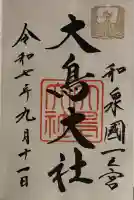 和泉國一之宮
大鳥大社
令和七年九月十一日